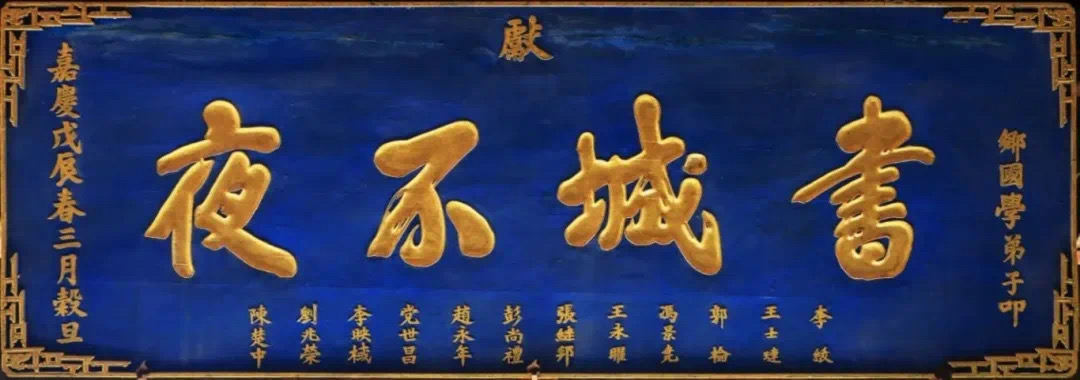 獻
鄉國學弟子叩
書城不夜
李
王士
郭
馮景
王永
張
彭尚禮
趙永年
党世昌
李映棫
劉兆榮
陳楚中
嘉慶戊辰春三月穀旦